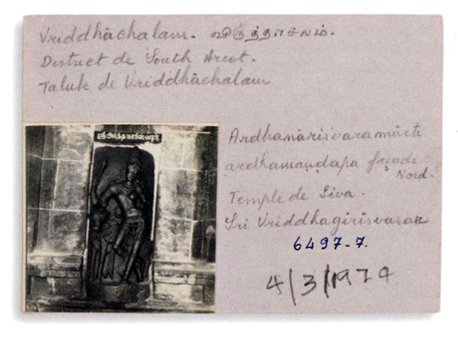 Vriddhāchalam. விருத்தாசலம்.
District de South Arcot.
Taluk de Vriddhāchalam
Ardhanārīśvaramūrti
ardhamaṇḍapa façade
Nord.
Temple de Śiva
Śri Vriddhagirīśvara
6497-7.
4/3/1974